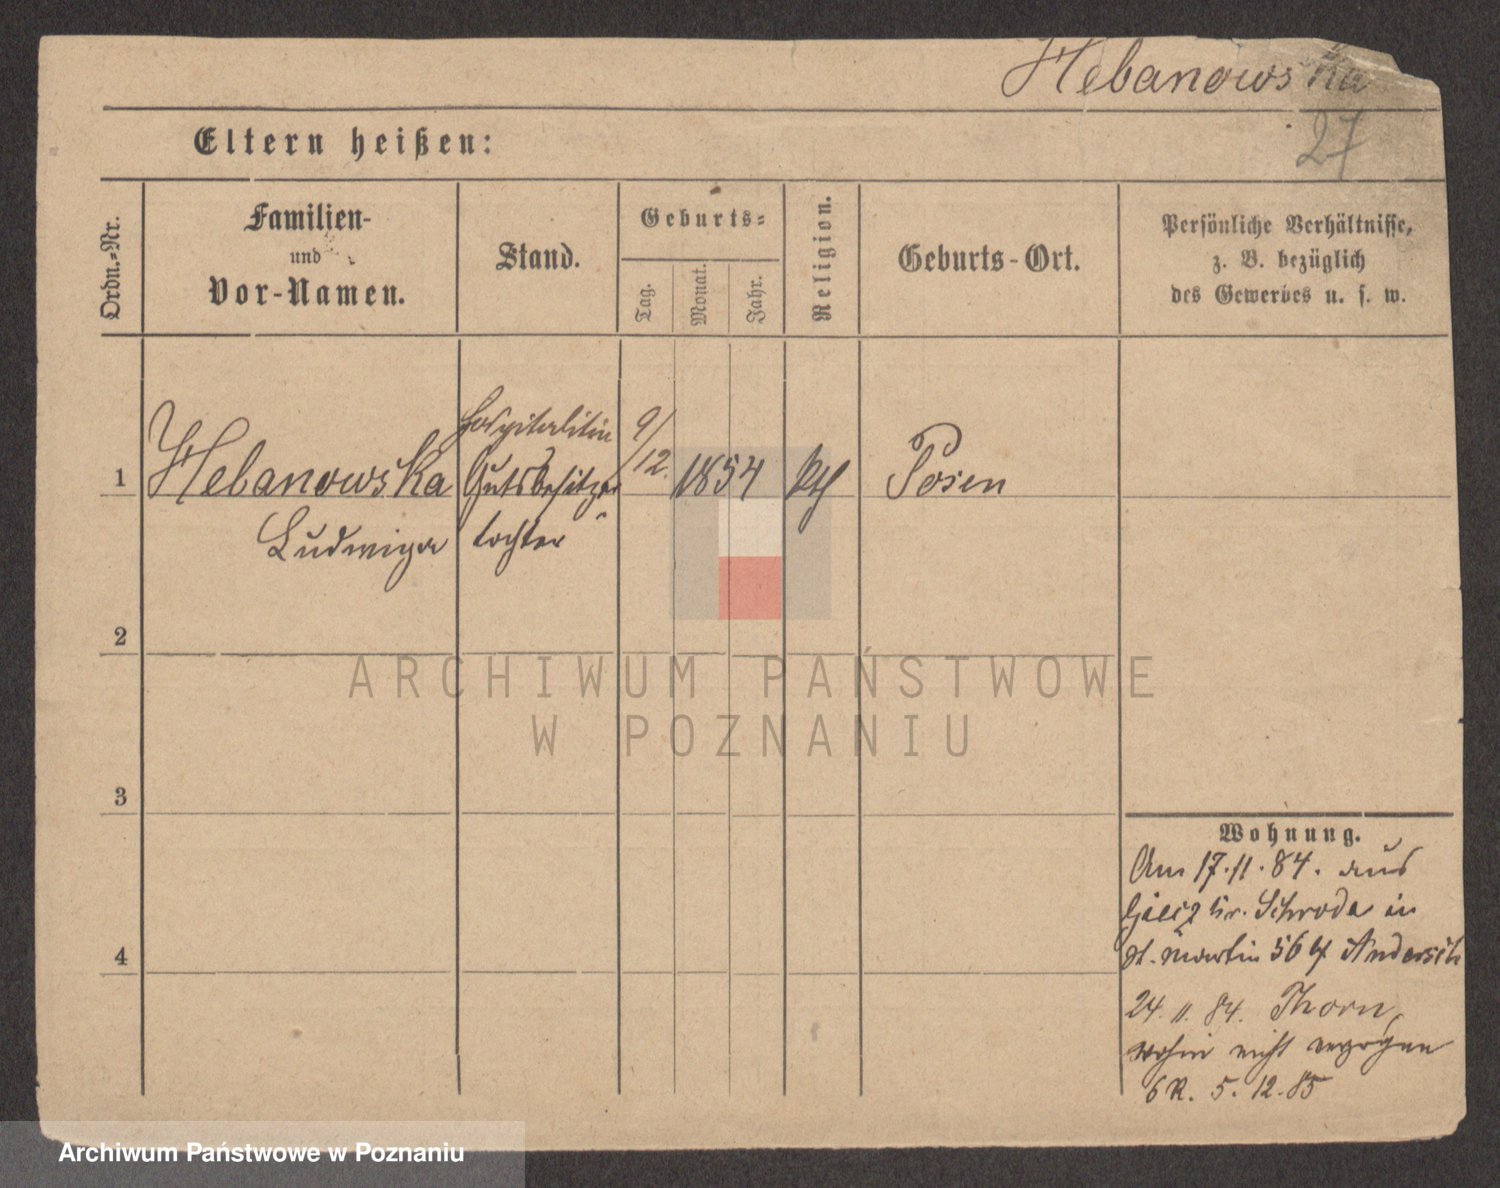 Hebanowska
27
Eltern heißen:
Ordn.-Nr.
Familien-
und
Vor-Namen.
Stand.
Geburts-
Tag.
Monat.
Jahr.
Religion.
Geburts-Ort.
Persönliche Verhältnisse,
z. B. bezüglich
des Gewerbes u. s. w.
1
Hebanowska
Ludwiga
Hospitalitin
Gutsbesitzer
tochter
9/12.
1854
Kth
Posen
2
3
4
Wohnung.
Am 17.11.84. aus
Giecz Kr. Schroda in
St. Martin 56 Andersch
24. 11. 84. Thorn,
wohin nicht verzogen
6R. 5. 12. 85
ARCHIWUM PAŃSTWOWE
W POZNANIU
Archiwum Państwowe w Poznaniu